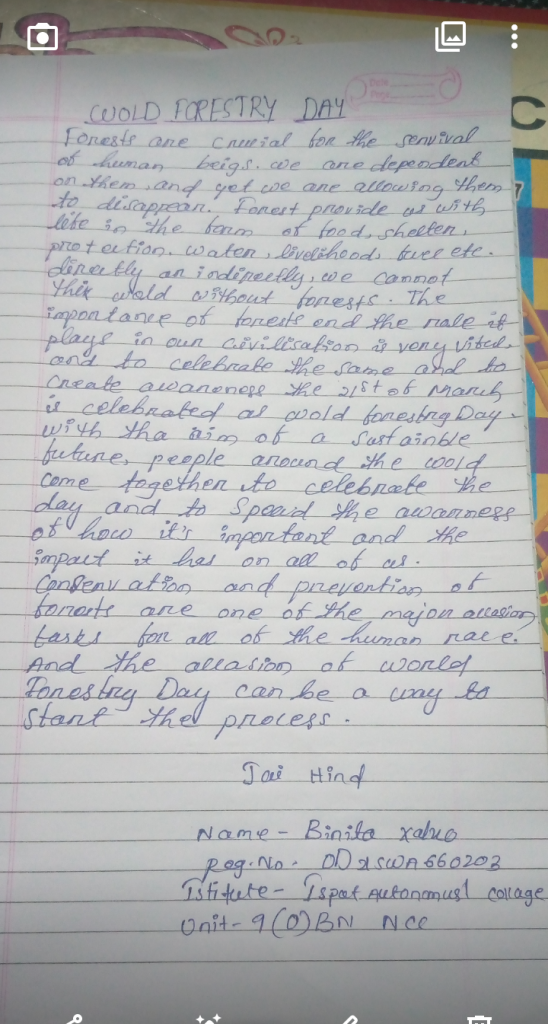 WOLD FORESTRY DAY
Date
Page
C
7
Forests are crucial for the servival
of human beigs. we are dependent
on them, and yet we are allowing them
to disappear. Forest provide us with
life in the form of food, shelter,
protection. water, livelihood, fuel etc.
directly or indirectly, we cannot
this wold without forests. The
importance of forests and the role it
plays in our civilisation is very vital.
and to celebrate the same and to
create awareness the 21st of March
is celebrated as wold forestry Day.
with tha aim of a sustainble
future, people around the woold
come together to celebrate the
day and to spread the awarness
of how it's important and the
impact it has on all of us.
Conservation and prevention of
forests are one of the major
tasks for all of the human race.
And the occasion of world
Forestry Day can be a way to
start the process.
Jai Hind
Name - Binita
Reg. No. OD21SWA660203
Istitute - Ispat Autonmus collage
Unit - 9 (O) BN NCC